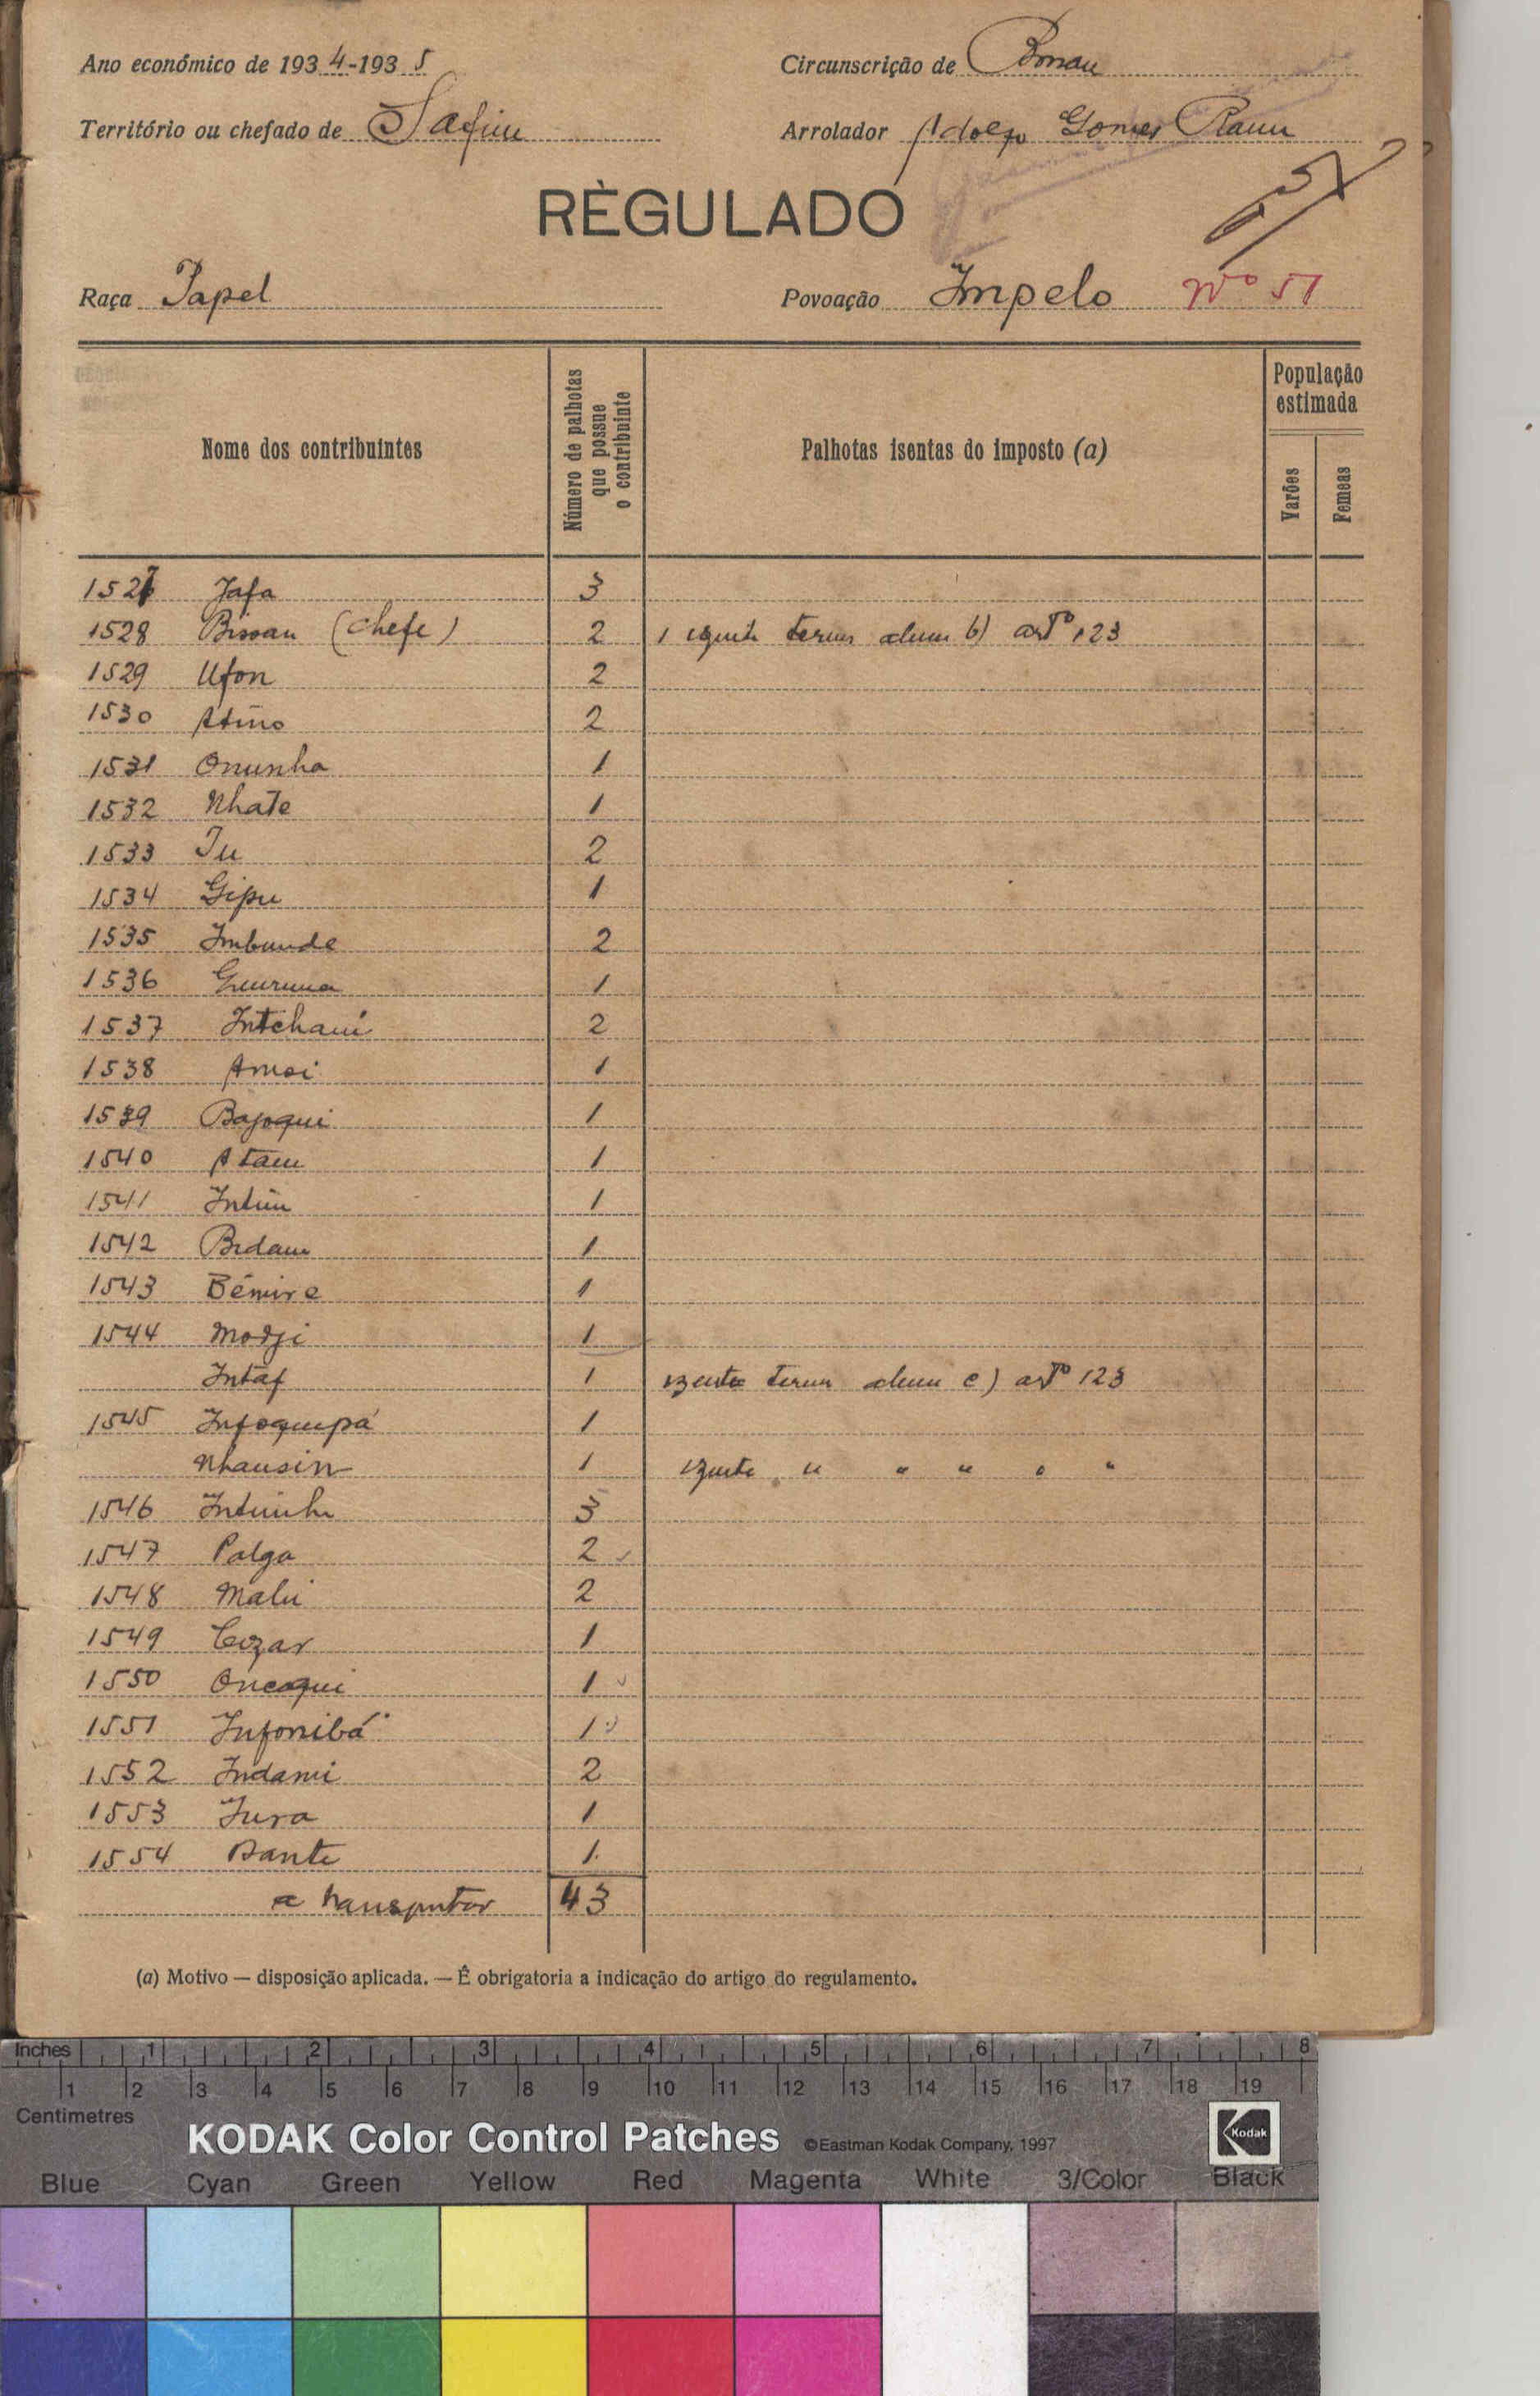 Ano económico de 1934-1935
Circunscrição de Bissau
Território ou chefado de Safim
Arrolador Adolfo Gomes
RÈGULADO
Raça Papel
Povoação Impelo Nº 51
Nome dos contribuintes
Número de palhotas que possue o contribuinte
Palhotas isentas do imposto (a)
População estimada
Varões
Femeas
1527 Jafa 3
1528 Bissau (Chefe) 2 1 b) artº 123
1529 Ufon 2
1530 Atino 2
1531 Onunha 1
1532 Nhate 1
1533 Iu 2
1534 Gipu 1
1535 Imbunde 2
1536 1
1537 Intchaui 2
1538 Amoi 1
1539 Bajoqui 1
1540 Atam 1
1541 Intim 1
1542 Bidam 1
1543 Bémire 1
1544 Modji 1
Intaf 1 c) artº 123
1545 Infoquepá 1
Nhausin 1 " " " " "
1546 3
1547 Palga 2
1548 Malu 2
1549 Cezar 1
1550 Oneaqui 1
1551 Infonibá 1
1552 Indami 2
1553 Jura 1
1554 Dante 1
a transportar 43
(a) Motivo — disposição aplicada. — É obrigatoria a indicação do artigo do regulamento.
Inches 1 2 3 4 5 6 7 8
1 2 3 4 5 6 7 8 9 10 11 12 13 14 15 16 17 18 19
Centimetres
KODAK Color Control Patches ©Eastman Kodak Company, 1997 Kodak
Blue Cyan Green Yellow Red Magenta White 3/Color Black